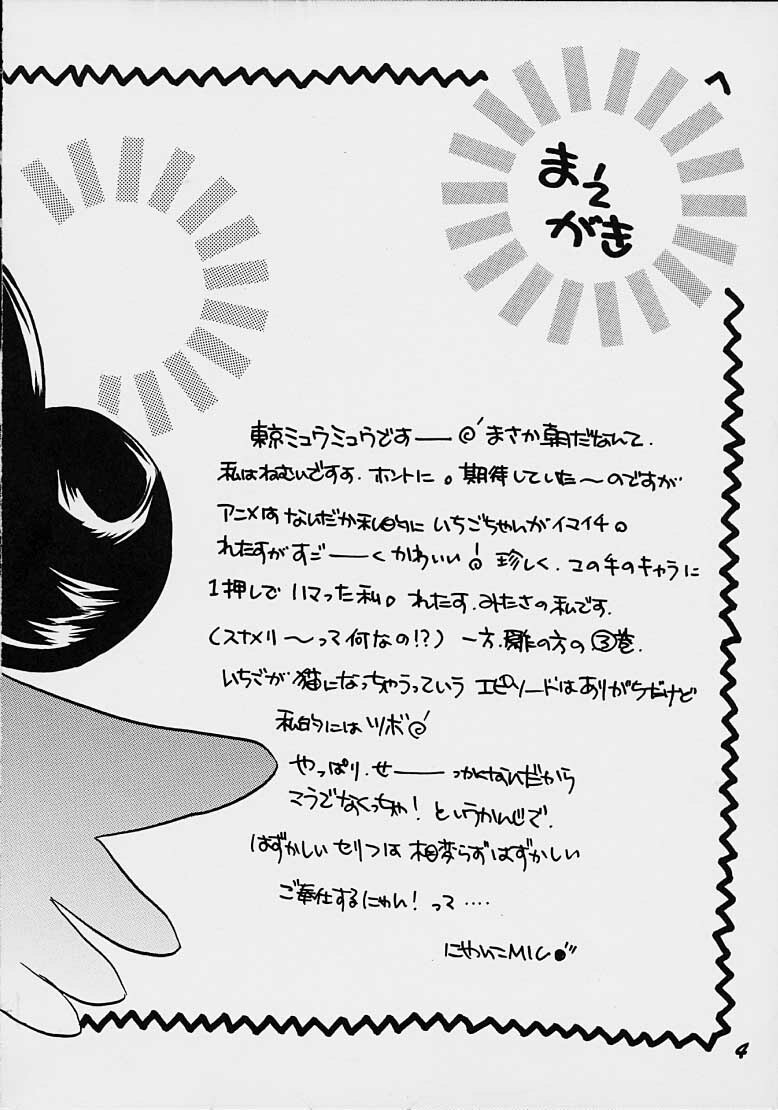 まえ
がき
東京ミュウミュウです――まさか朝だなんて.
私はねむいですよ.ホントに。期待していた〜のですが
アニメはなんだか私的にいちごちゃんがイマイチ。
れたすがすご――くかわいい!珍しく.この手のキャラに
1押しでハマった私。れたす.みたさの私です.
(スナメリ〜って何なの!?)一方.雑の方の③巻.
いちごが猫になっちゃうっていうエピソードはありがちだけど
私的にはツボ
やっぱり.せ――っかくなんだから
でなくっちゃ!というかんじで.
はずかしいセリフは相変らずはずかしい
ご奉仕するにゃん!って….
MIC
4